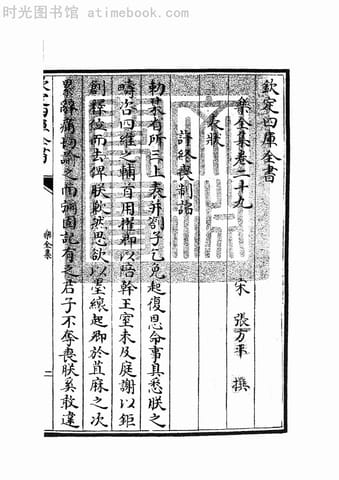 时光图书馆 www.atimebook.com
欽定四庫全書
樂全集卷二十九
宋 張方平 撰
表狀
許終喪制詔
勅某省所三上表并劄子乞免起復恩命事具悉朕之
疇咨四維之輔首用攉卿以陪幹王室未及庭謝以鉅
創釋位而去俾朕歉然思欲以墨縗起卿於苴麻之次
累辭痛切諭之而彌固記有之君子不奪喪朕奚敢違
樂全集
二